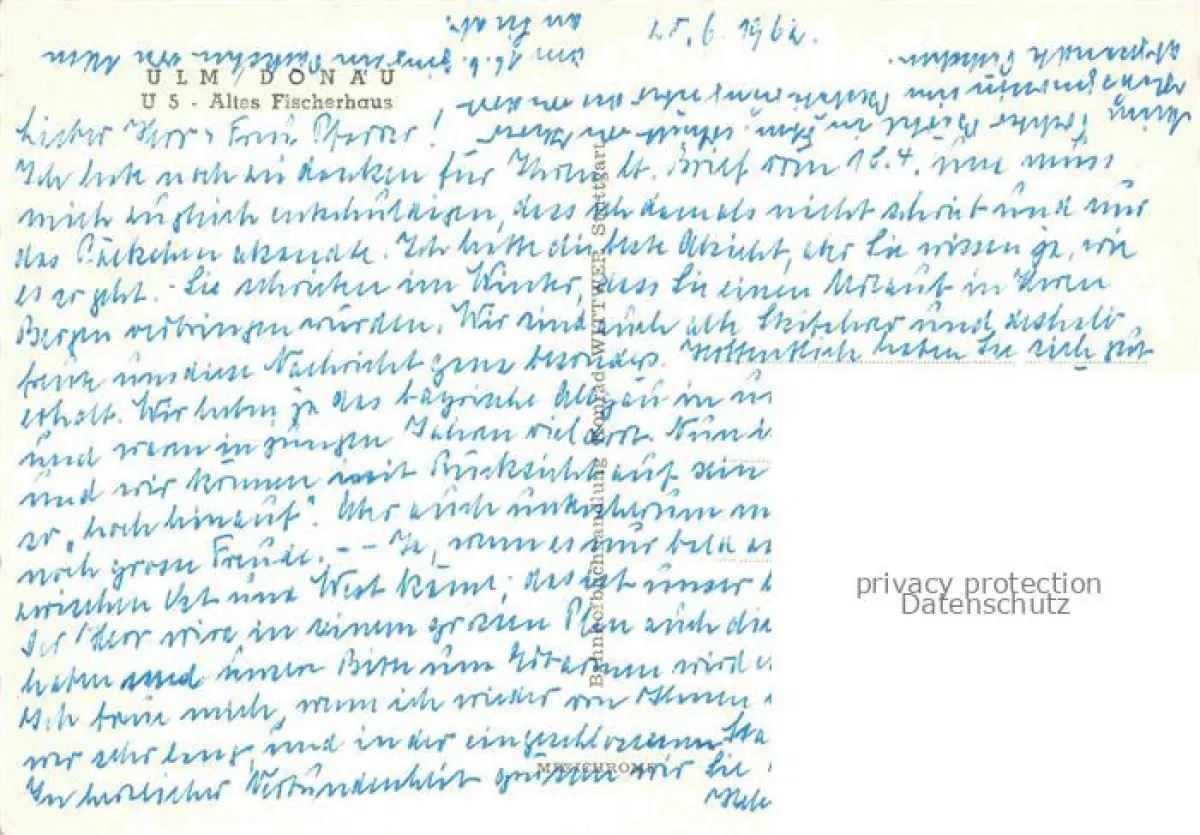 25.6.1962.
ULM / DONAU
U 5 - Altes Fischerhaus
Lieber Herr & Frau Pfarrer!
Ich habe noch zu danken für Ihren lb. Brief vom 18.4. und muss
mich zugleich entschuldigen, dass ich damals nicht schrieb und nur
das Päckchen absandte. Ich hatte die beste Absicht, aber Sie wissen ja, wie
es so geht. - Sie schrieben im Winter, dass Sie einen Urlaub in Ihren
Bergen verbringen würden. Wir sind auch alte Skifahrer und deshalb
freute uns diese Nachricht ganz besonders. Hoffentlich haben Sie sich gut
erholt. Wir haben ja das bayrische Allgäu in
und waren in jungen Jahren viel dort. Nun
und wir können mit Rücksicht auf sein
so "hoch hinauf". Aber auch unten herum
noch grosse Freude. -- Ja, wenn es nur bald
zwischen Ost und West käme; das ist unser
Der Herr wird in seinem grossen Plan auch die
haben und unsere Bitte um Erbarmen wird
Ich freue mich, wenn ich wieder von Ihnen
wir sehr lang, und in der eingeschlossenen
In herzlicher Verbundenheit grüssen wir Sie
Bahnhofbuchhandlung Konrad WITTWER Stuttgart
METZICHROME
am 16.6. ging ein Päckchen
an Sie ab.
privacy protection
Datenschutz